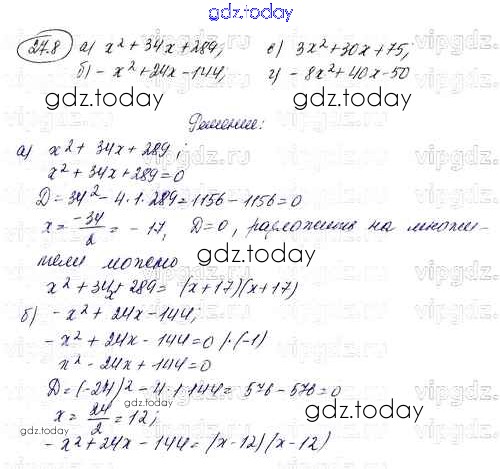 gdz.today
27.8 а) x² + 34x + 289; с) 3x² + 30x + 75;
б) - x² + 24x - 144; г) - 8x² + 40x - 50
gdz.today
gdz.today
Решение:
а) x² + 34x + 289;
x² + 34x + 289 = 0
D = 34² - 4·1·289 = 1156 - 1156 = 0
x = -34/2 = - 17, D = 0, разложить на множи-
тели можно
gdz.today
x² + 34x + 289 = (x + 17)(x + 17)
б) - x² + 24x - 144;
- x² + 24x - 144 = 0 |·(-1)
x² - 24x + 144 = 0
D = (-24)² - 4·1·144 = 576 - 576 = 0
x = 24/2 = 12;
gdz.today
- x² + 24x - 144 = (x - 12)(x - 12)